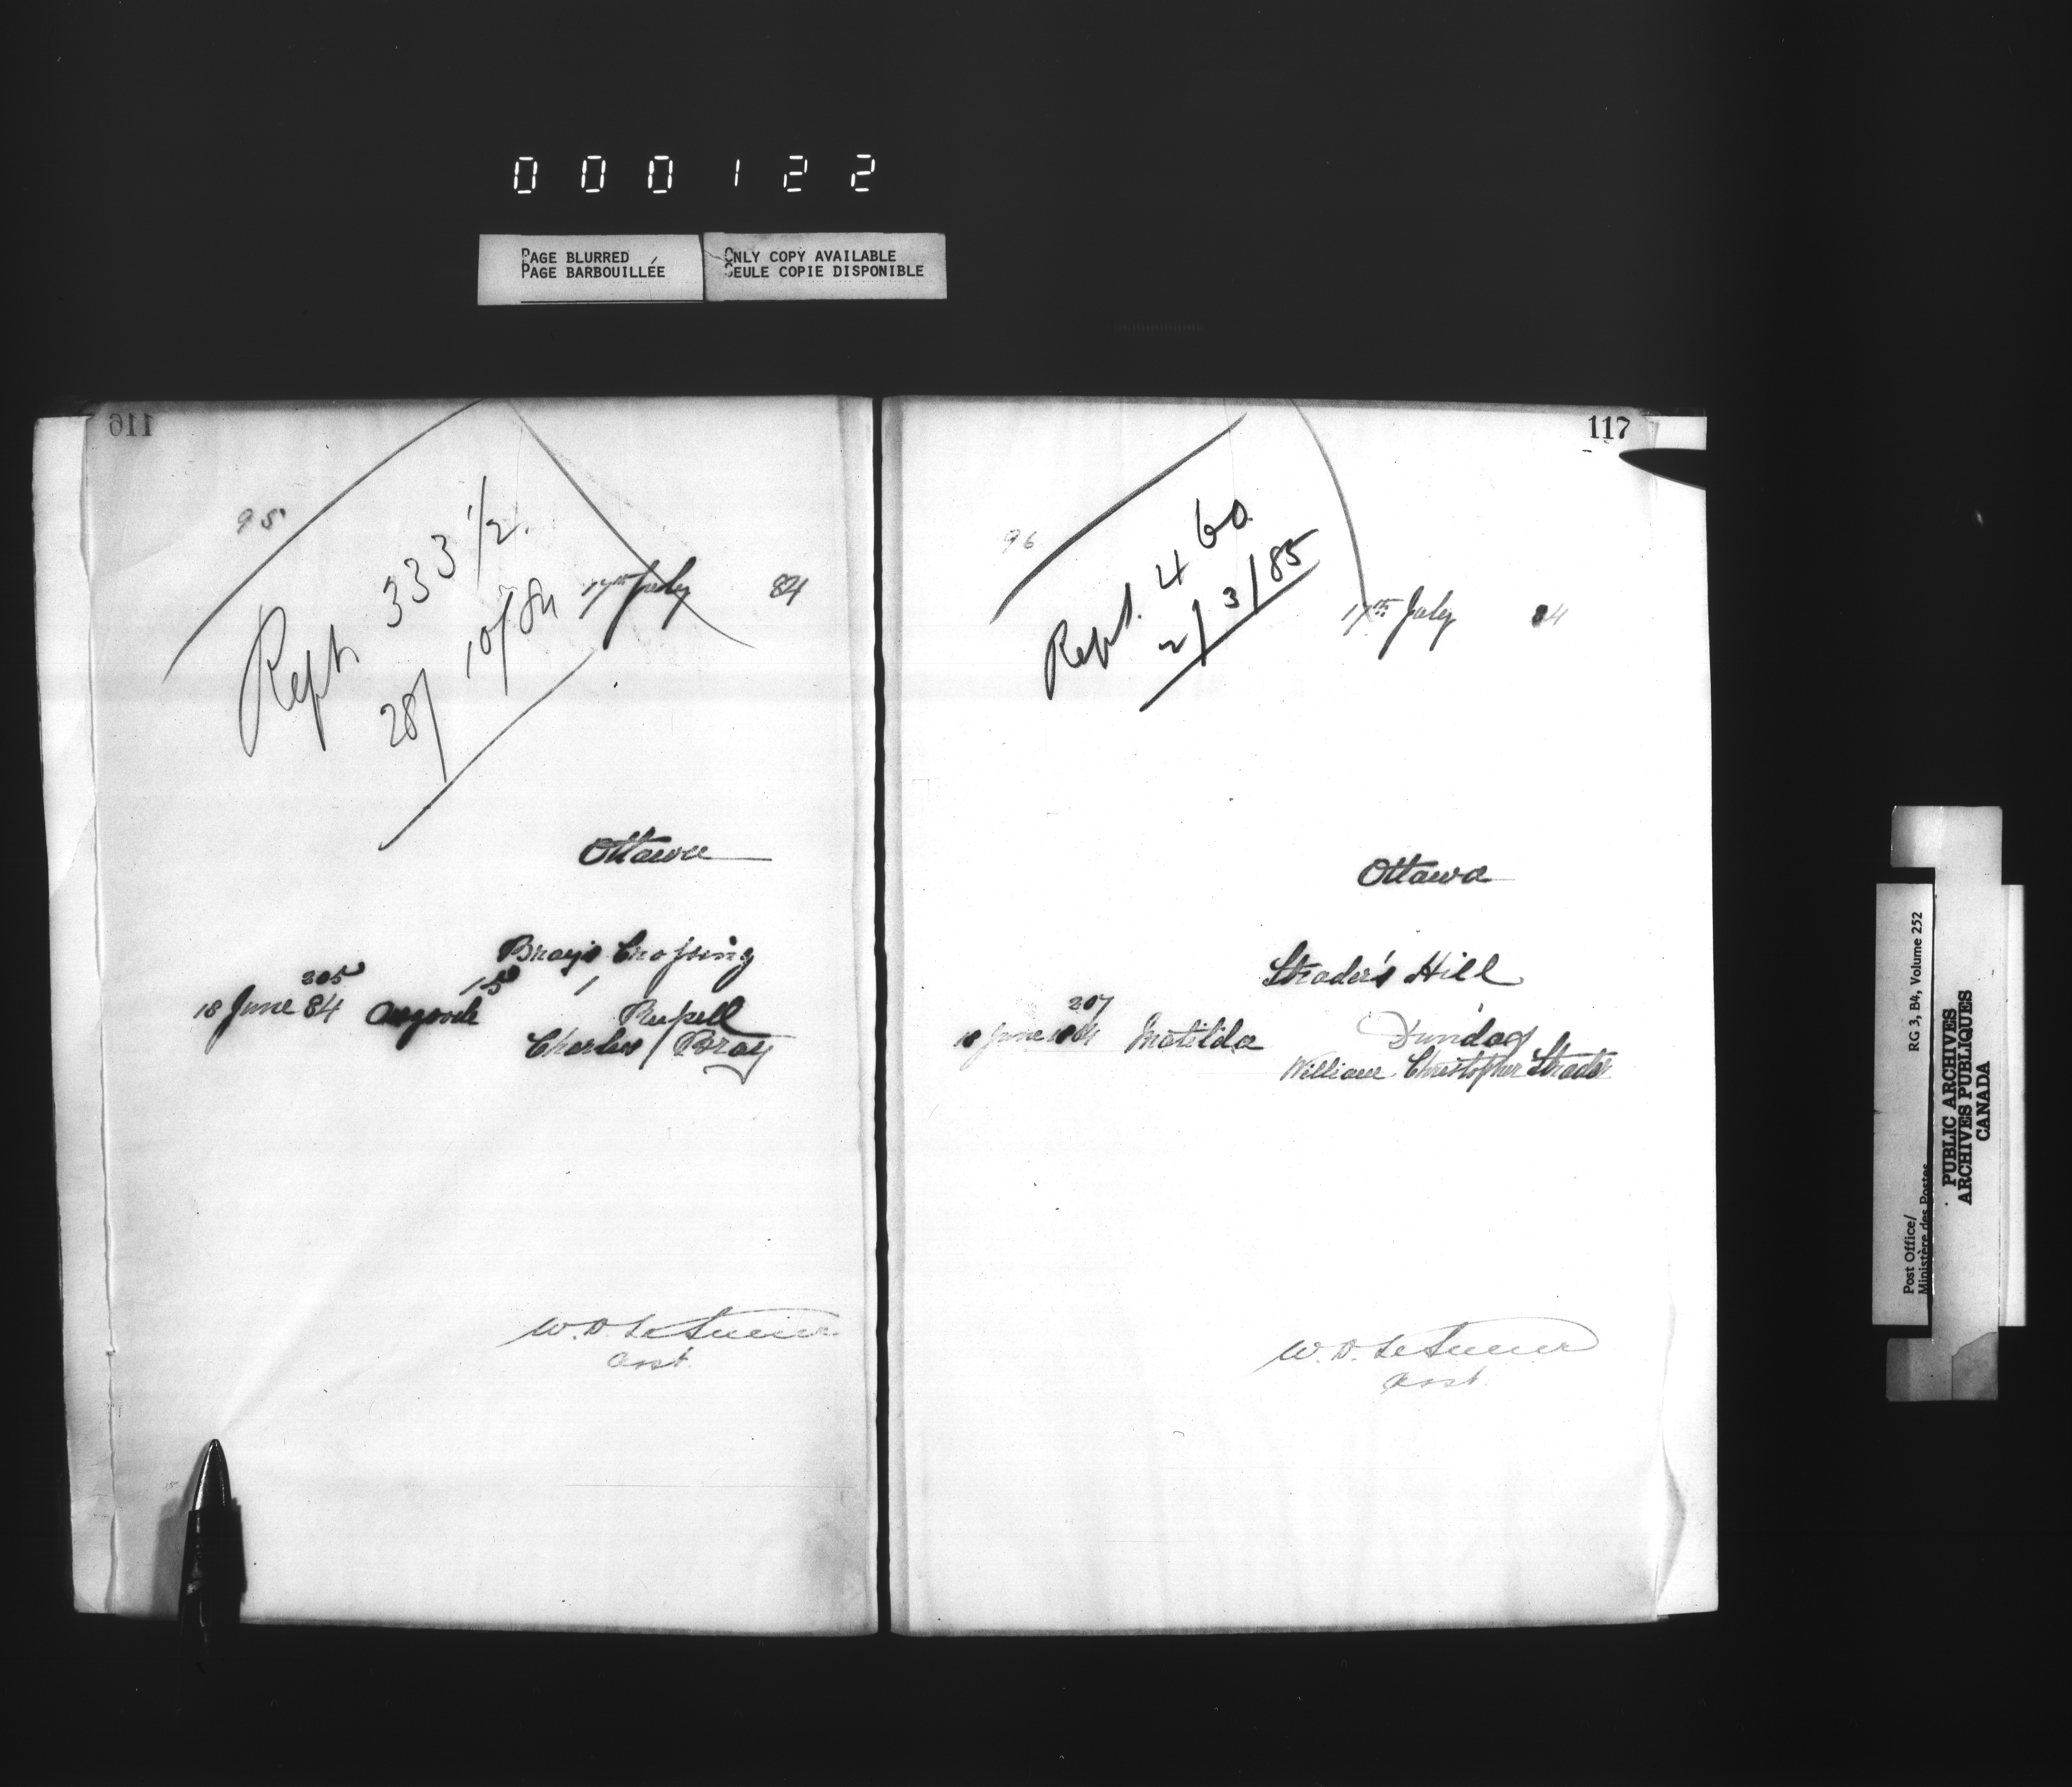 000122
PAGE BLURRED
PAGE BARBOUILLÉE
ONLY COPY AVAILABLE
SEULE COPIE DISPONIBLE
116
95
Rept. 333 1/2.
28/10/84
17th July 84
Ottawa
Bray's Crossing
205
15 1
18 June 84 Osgoode Russell
Charles Bray
W. D. LeSueur
117
96
Rept. 460
2/3/85
17th July 84
Ottawa
Strader's Hill
207
18 June 1884 Matilda Dundas
William Christopher Strader
W. D. LeSueur
Post Office/
Ministère des Postes
RG 3, B4, Volume 252
PUBLIC ARCHIVES
ARCHIVES PUBLIQUES
CANADA